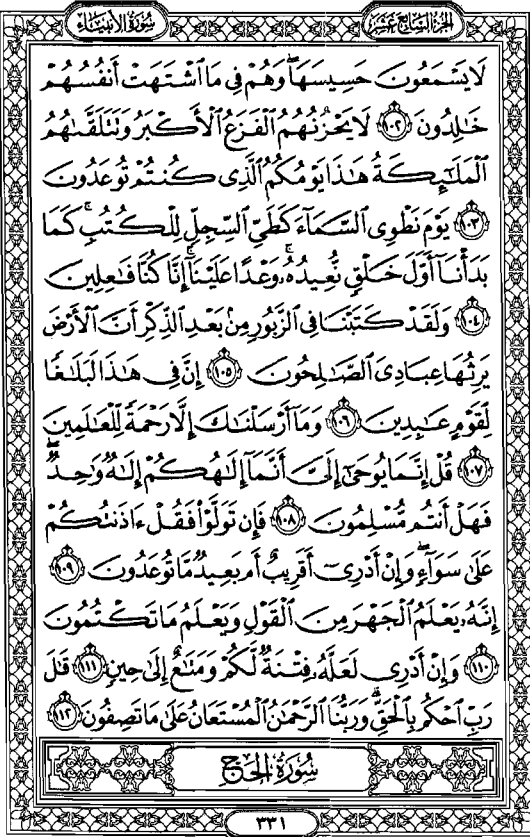 سُورَةُ الأَنْبِيَاء الجُزءُ السَّابِعَ عَشَرَ
لَا يَسْمَعُونَ حَسِيسَهَا ۖ وَهُمْ فِي مَا ٱشْتَهَتْ أَنفُسُهُمْ
خَـٰلِدُونَ ١٠٢ لَا يَحْزُنُهُمُ ٱلْفَزَعُ ٱلْأَكْبَرُ وَتَتَلَقَّىٰهُمُ
ٱلْمَلَـٰٓئِكَةُ هَـٰذَا يَوْمُكُمُ ٱلَّذِي كُنتُمْ تُوعَدُونَ
١٠٣ يَوْمَ نَطْوِي ٱلسَّمَآءَ كَطَيِّ ٱلسِّجِلِّ لِلْكُتُبِ ۚ كَمَا
بَدَأْنَآ أَوَّلَ خَلْقٍ نُّعِيدُهُۥ ۚ وَعْدًا عَلَيْنَآ ۚ إِنَّا كُنَّا فَـٰعِلِينَ
١٠٤ وَلَقَدْ كَتَبْنَا فِي ٱلزَّبُورِ مِنۢ بَعْدِ ٱلذِّكْرِ أَنَّ ٱلْأَرْضَ
يَرِثُهَا عِبَادِيَ ٱلصَّـٰلِحُونَ ١٠٥ إِنَّ فِي هَـٰذَا لَبَلَـٰغًا
لِّقَوْمٍ عَـٰبِدِينَ ١٠٦ وَمَآ أَرْسَلْنَـٰكَ إِلَّا رَحْمَةً لِّلْعَـٰلَمِينَ
١٠٧ قُلْ إِنَّمَا يُوحَىٰٓ إِلَيَّ أَنَّمَآ إِلَـٰهُكُمْ إِلَـٰهٌ وَٰحِدٌ ۖ
فَهَلْ أَنتُم مُّسْلِمُونَ ١٠٨ فَإِن تَوَلَّوْا۟ فَقُلْ ءَاذَنتُكُمْ
عَلَىٰ سَوَآءٍ ۖ وَإِنْ أَدْرِيٓ أَقَرِيبٌ أَم بَعِيدٌ مَّا تُوعَدُونَ ١٠٩
إِنَّهُۥ يَعْلَمُ ٱلْجَهْرَ مِنَ ٱلْقَوْلِ وَيَعْلَمُ مَا تَكْتُمُونَ
١١٠ وَإِنْ أَدْرِي لَعَلَّهُۥ فِتْنَةٌ لَّكُمْ وَمَتَـٰعٌ إِلَىٰ حِينٍ ١١١ قَـٰلَ
رَبِّ ٱحْكُم بِٱلْحَقِّ ۗ وَرَبُّنَا ٱلرَّحْمَـٰنُ ٱلْمُسْتَعَانُ عَلَىٰ مَا تَصِفُونَ ١١٢
سُورَةُ الحَجِّ
٣٣١